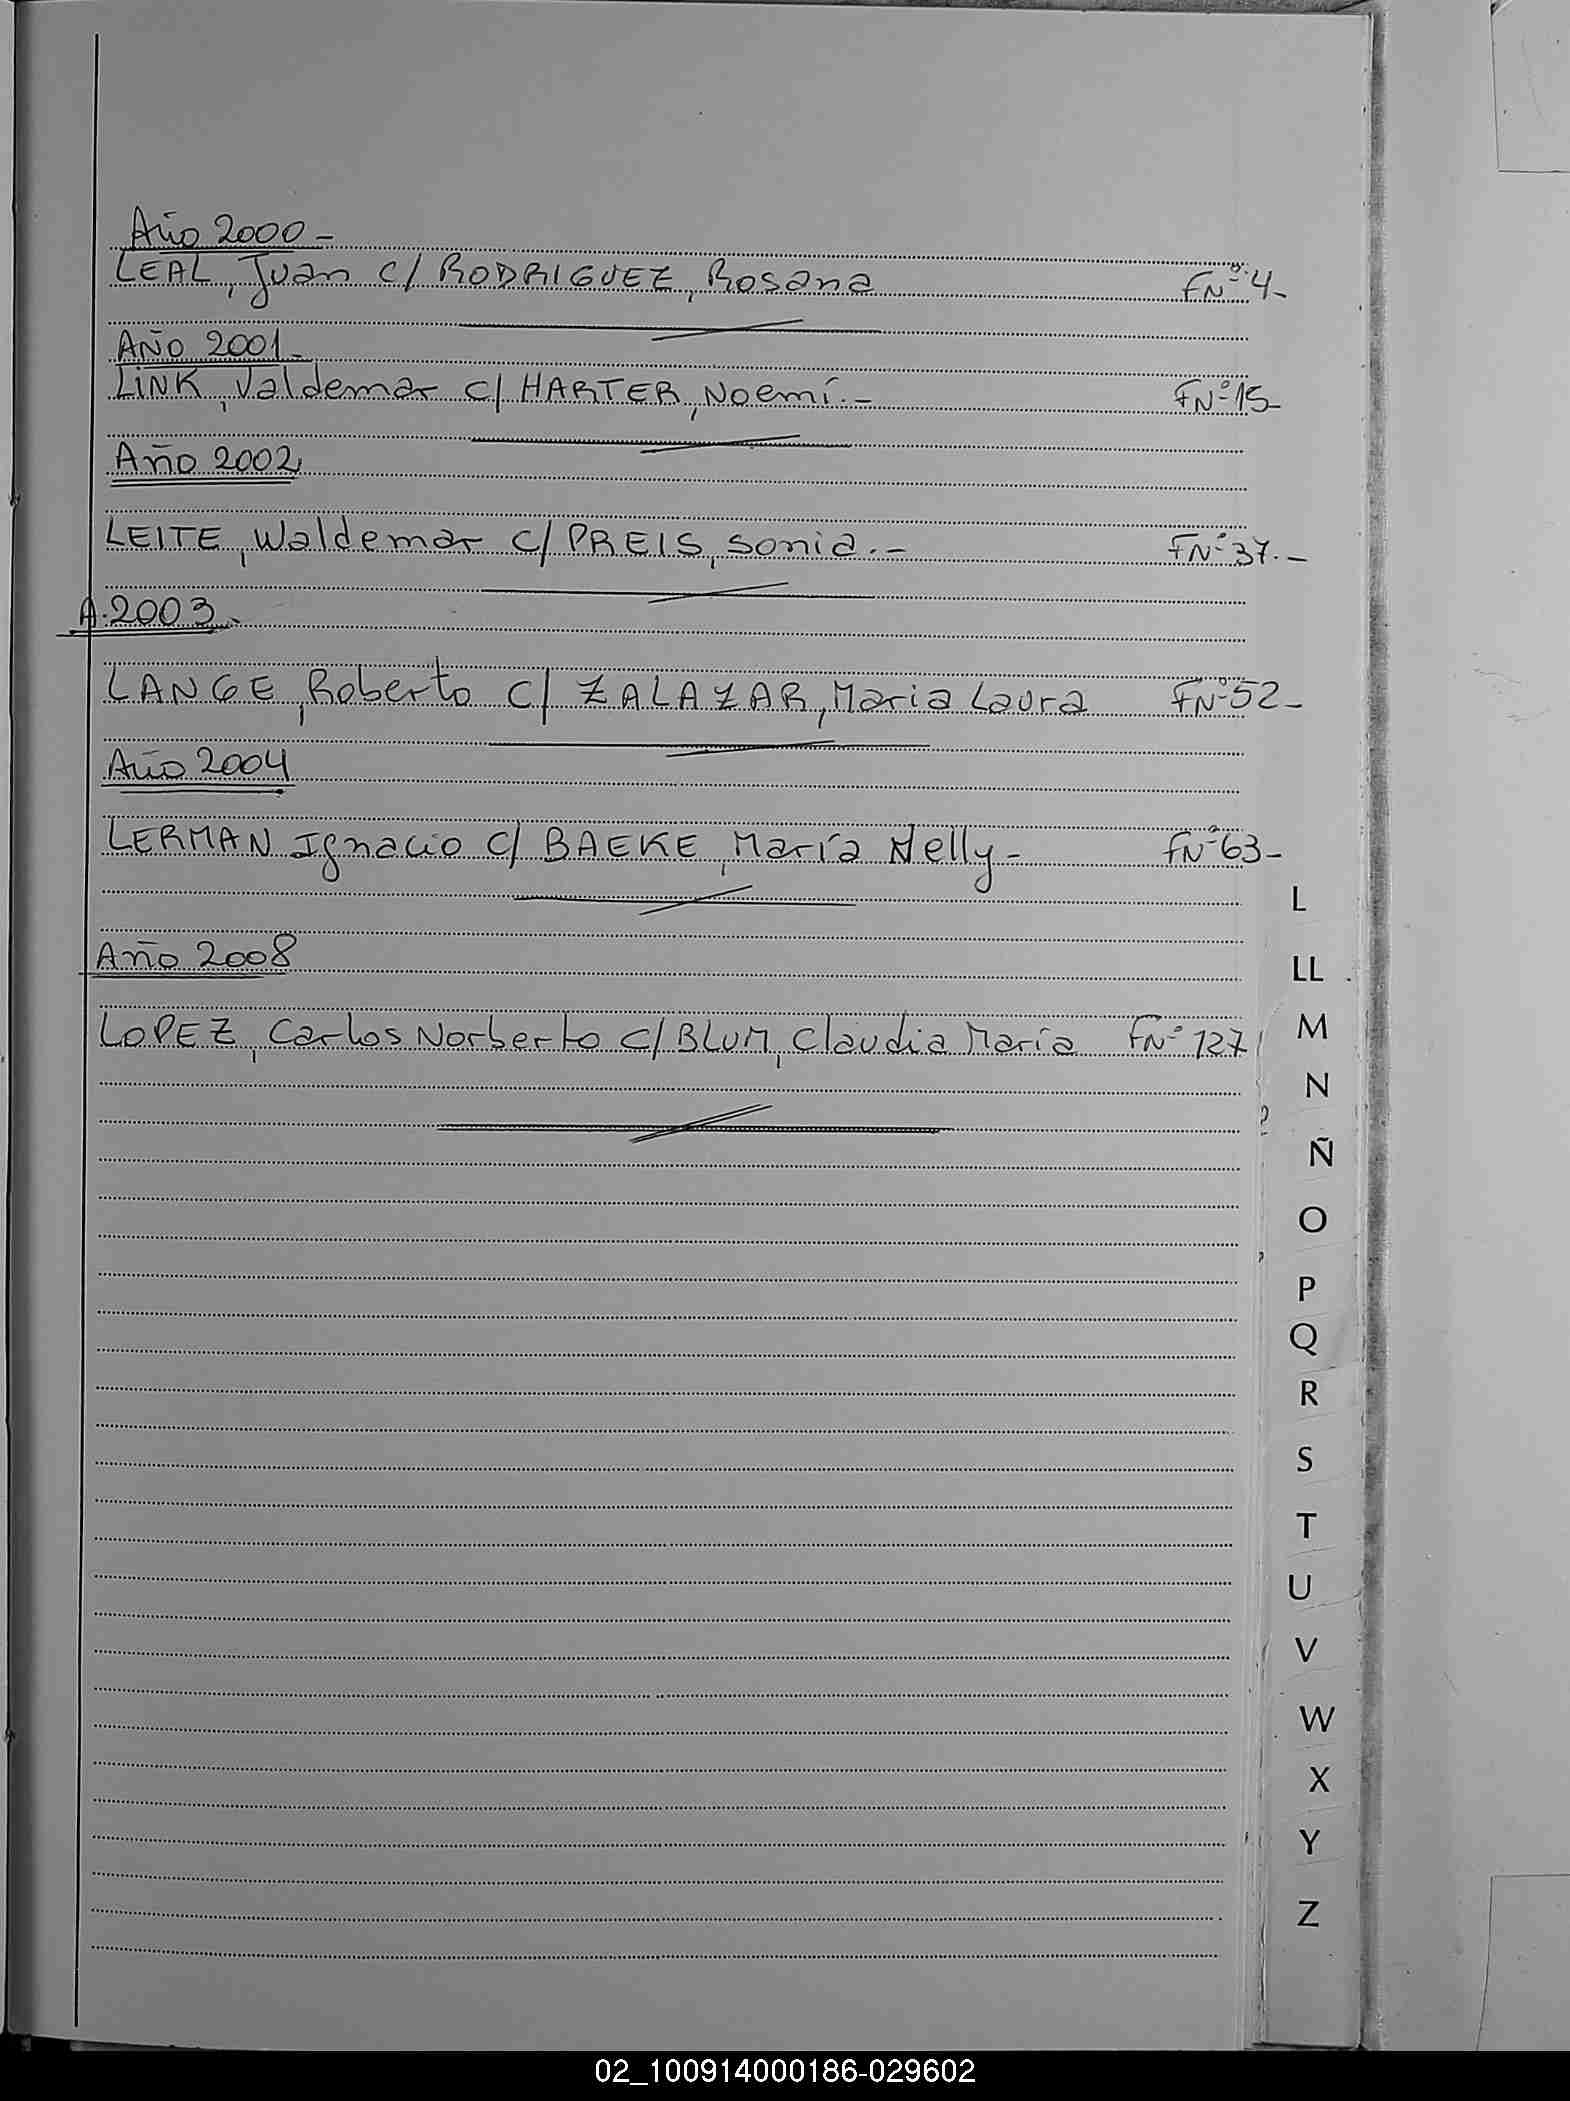 Año 2000 -
LEAL, Juan c/ RODRIGUEZ, Rosana FNº 4-
AÑO 2001-
LINK, Valdemar c/ HARTER, Noemí.- FNº 15-
Año 2002
LEITE, Waldemar c/ PREIS, Sonia.- FNº 37.-
A.2003.
LANGE, Roberto c/ ZALAZAR, Maria Laura FNº 52-
Año 2004
LERMAN Ignacio c/ BAEKE, María Nelly- FNº 63-
Año 2008
LOPEZ, Carlos Norberto c/ BLUM, Claudia María FNº 127
L
LL
M
N
Ñ
O
P
Q
R
S
T
U
V
W
X
Y
Z
02_100914000186-029602